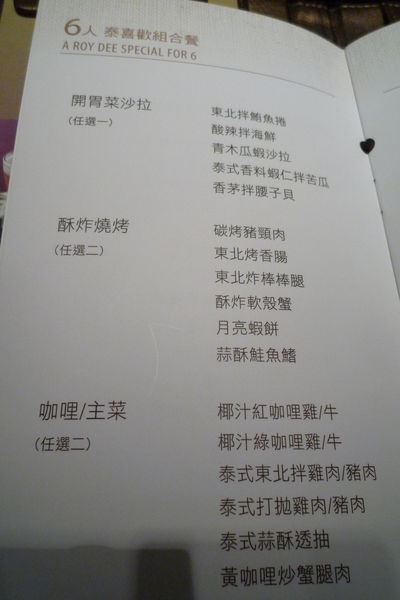 6人 泰喜歡組合餐
A ROY DEE SPECIAL FOR 6
開胃菜沙拉
(任選一)
東北拌鮪魚捲
酸辣拌海鮮
青木瓜蝦沙拉
泰式香料蝦仁拌苦瓜
香茅拌腰子貝
酥炸燒烤
(任選二)
碳烤豬頸肉
東北烤香腸
東北炸棒棒腿
酥炸軟殼蟹
月亮蝦餅
蒜酥鮭魚鰭
咖哩/主菜
(任選二)
椰汁紅咖哩雞/牛
椰汁綠咖哩雞/牛
泰式東北拌雞肉/豬肉
泰式打拋雞肉/豬肉
泰式蒜酥透抽
黃咖哩炒蟹腿肉